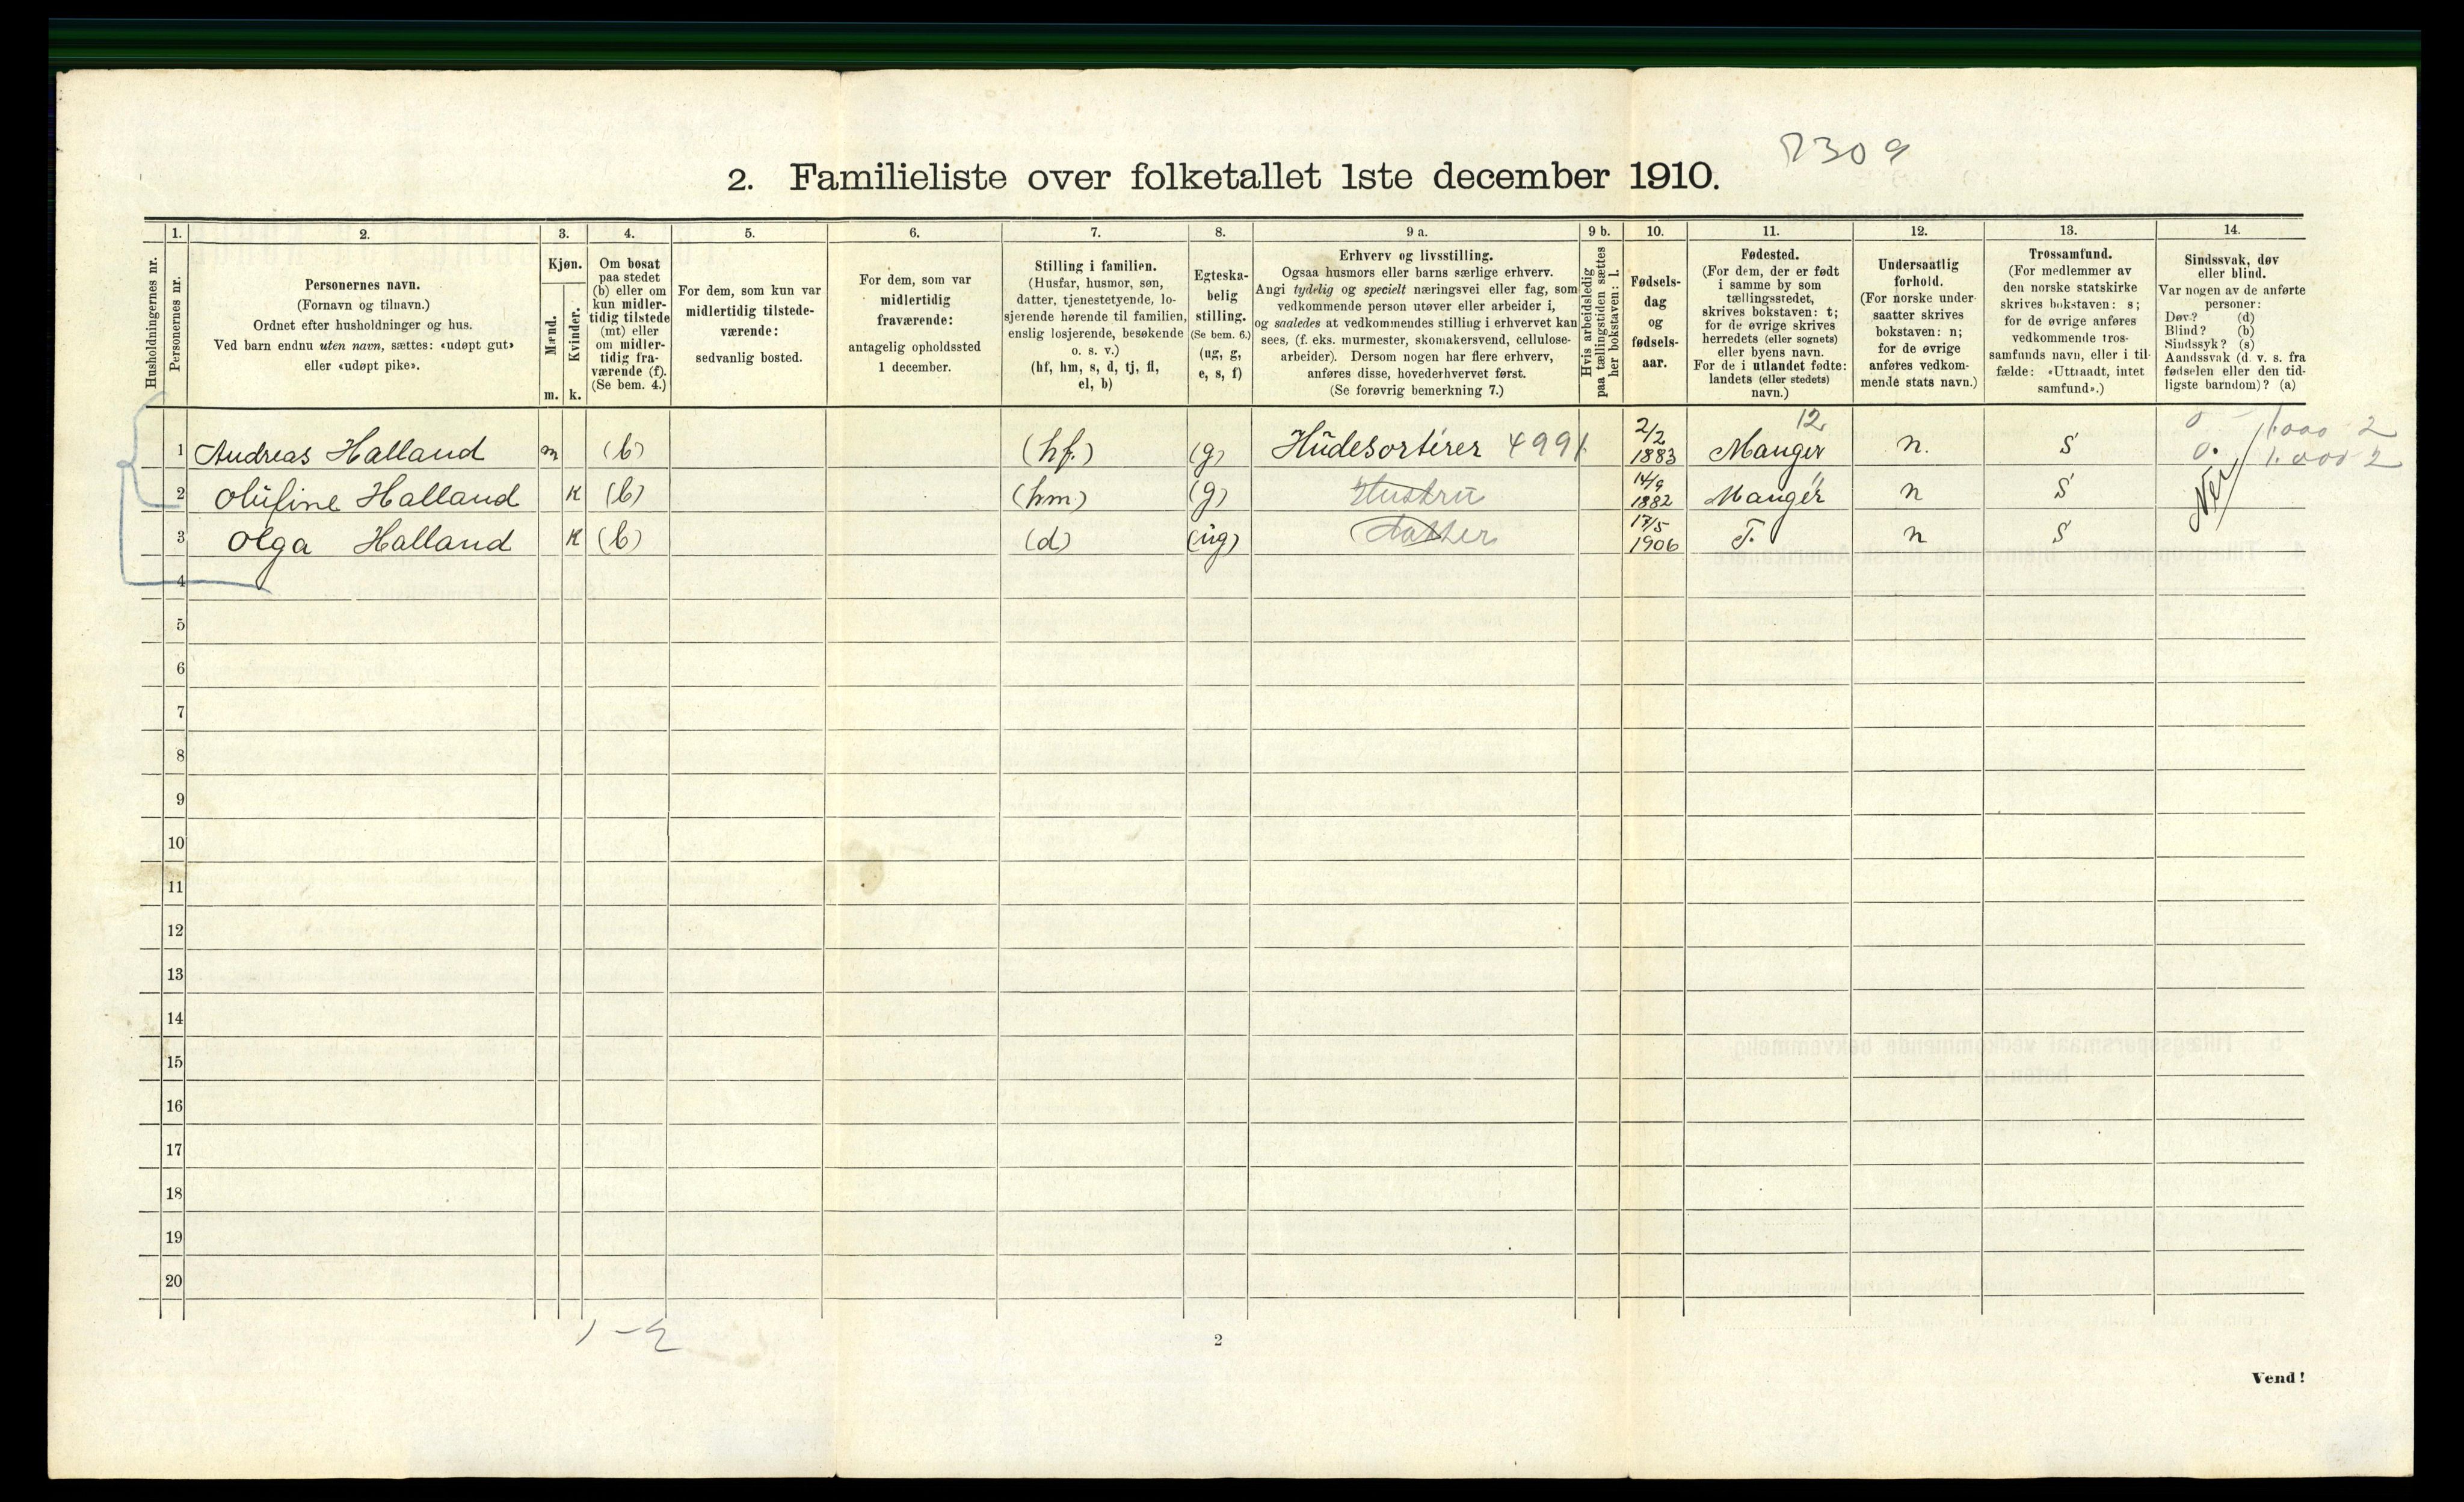 2309
2. Familieliste over folketallet 1ste december 1910.
Husholdningernes nr.
1. Personernes nr.
2. Personernes navn.
(Fornavn og tilnavn.)
Ordnet efter husholdninger og hus.
Ved barn endnu uten navn, sættes: «udøpt gut»
eller «udøpt pike».
3. Kjøn.
Mænd. m.
Kvinder. k.
4. Om bosat
paa stedet
(b) eller om
kun midler-
tidig tilstede
(mt) eller
om midler-
tidig fra-
værende (f).
(Se bem. 4.)
5. For dem, som kun var
midlertidig tilstede-
værende:
sedvanlig bosted.
6. For dem, som var
midlertidig
fraværende:
antagelig opholdssted
1 december.
7. Stilling i familien.
(Husfar, husmor, søn,
datter, tjenestetyende, lo-
sjerende hørende til familien,
enslig losjerende, besøkende
o. s. v.)
(hf, hm, s, d, tj, fl,
el, b)
8. Egteska-
belig
stilling.
(Se bem. 6.)
(ug, g,
e, s, f)
9 a. Erhverv og livsstilling.
Ogsaa husmors eller barns særlige erhverv.
Angi tydelig og specielt næringsvei eller fag, som
vedkommende person utøver eller arbeider i,
og saaledes at vedkommendes stilling i erhvervet kan
sees, (f. eks. murmester, skomakersvend, cellulose-
arbeider). Dersom nogen har flere erhverv,
anføres disse, hovederhvervet først.
(Se forøvrig bemerkning 7.)
9 b. Hvis arbeidsledig
paa tællingstiden sættes
her bokstaven: l.
10. Fødsels-
dag
og
fødsels-
aar.
11. Fødested.
(For dem, der er født
i samme by som
tællingsstedet,
skrives bokstaven: t;
for de øvrige skrives
herredets (eller sognets)
eller byens navn.
For de i utlandet fødte:
landets (eller stedets)
navn.)
12. Undersaatlig
forhold.
(For norske under-
saatter skrives
bokstaven: n;
for de øvrige
anføres vedkom-
mende stats navn.)
13. Trossamfund.
(For medlemmer av
den norske statskirke
skrives bokstaven: s;
for de øvrige anføres
vedkommende tros-
samfunds navn, eller i til-
fælde: «Uttraadt, intet
samfund».)
14. Sindssvak, døv
eller blind.
Var nogen av de anførte
personer:
Døv? (d)
Blind? (b)
Sindssyk? (s)
Aandssvak (d. v. s. fra
fødselen eller den tid-
ligste barndom)? (a)
12 0 1.000 2
1 Andreas Halland m (b) (hf.) (g) Hudesortérer 4991. 2/2 1883 Manger n. S 0. 1.000 2
2 Olufine Halland K (b) (hm) (g) Hustru 14/9 1882 Manger n S Nei
3 Olga Halland K (b) (d) (ug) datter 17/5 1906 T. n S
4
5
6
7
8
9
10
11
12
13
14
15
16
17
18
19
20
1-2
2
Vend!